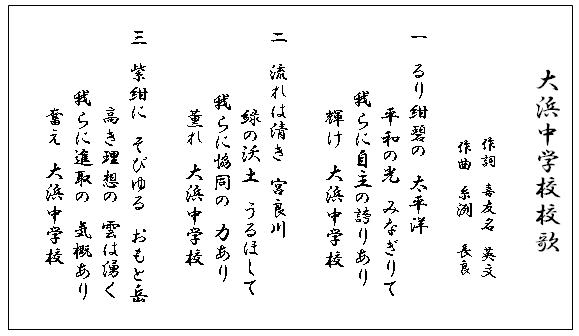 大浜中学校校歌
作詞 喜友名 英文
作曲 糸洌 長良
一 るり紺碧の 太平洋
平和の光 みなぎりて
我らに自主の誇りあり
輝け 大浜中学校
二 流れは清き 宮良川
緑の沃土 うるほして
我らに協同の 力あり
薫れ 大浜中学校
三 紫紺に そびゆる おもと岳
高き理想の 雲は湧く
我らに進取の 気概あり
奮え 大浜中学校